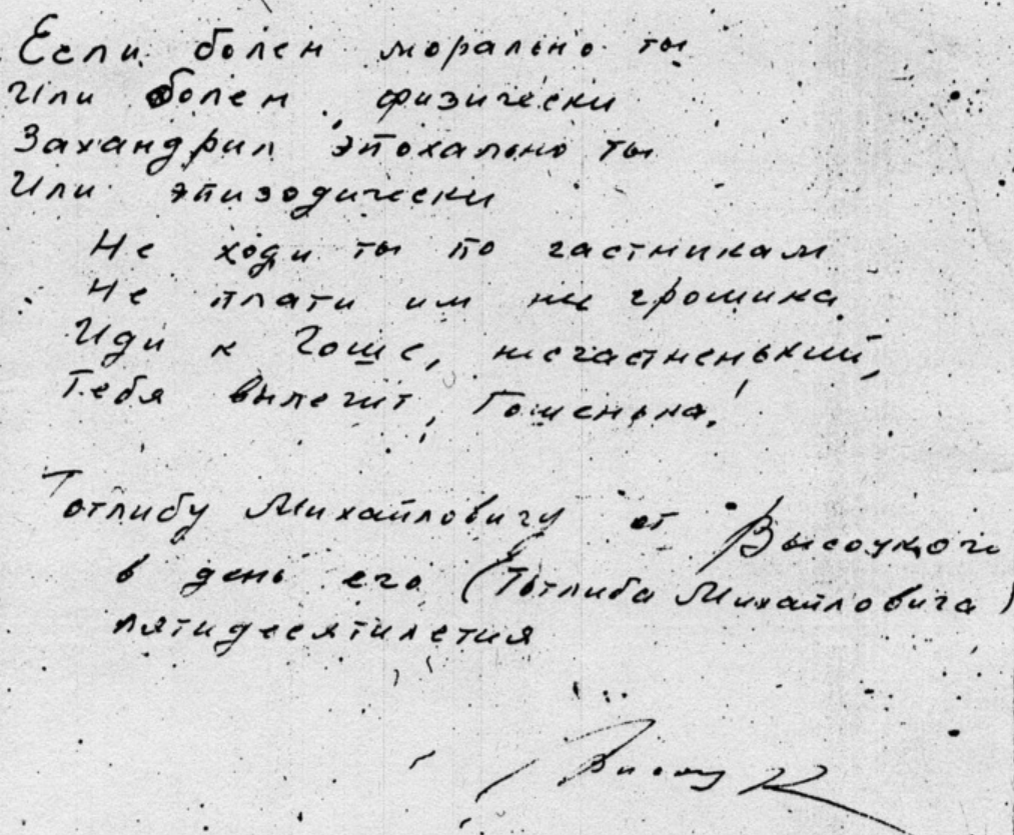 Если болен морально ты
Или болен физически
Захандрил эпохально ты
Или эпизодически
Не ходи ты по частникам
Не плати им ни грошика
Иди к Гоше, несчастненький,
Тебя вылечит, Гошенька!
Готлибу Михайловичу от Высоцкого
в день его (Готлиба Михайловича)
пятидесятилетия
Высоцк